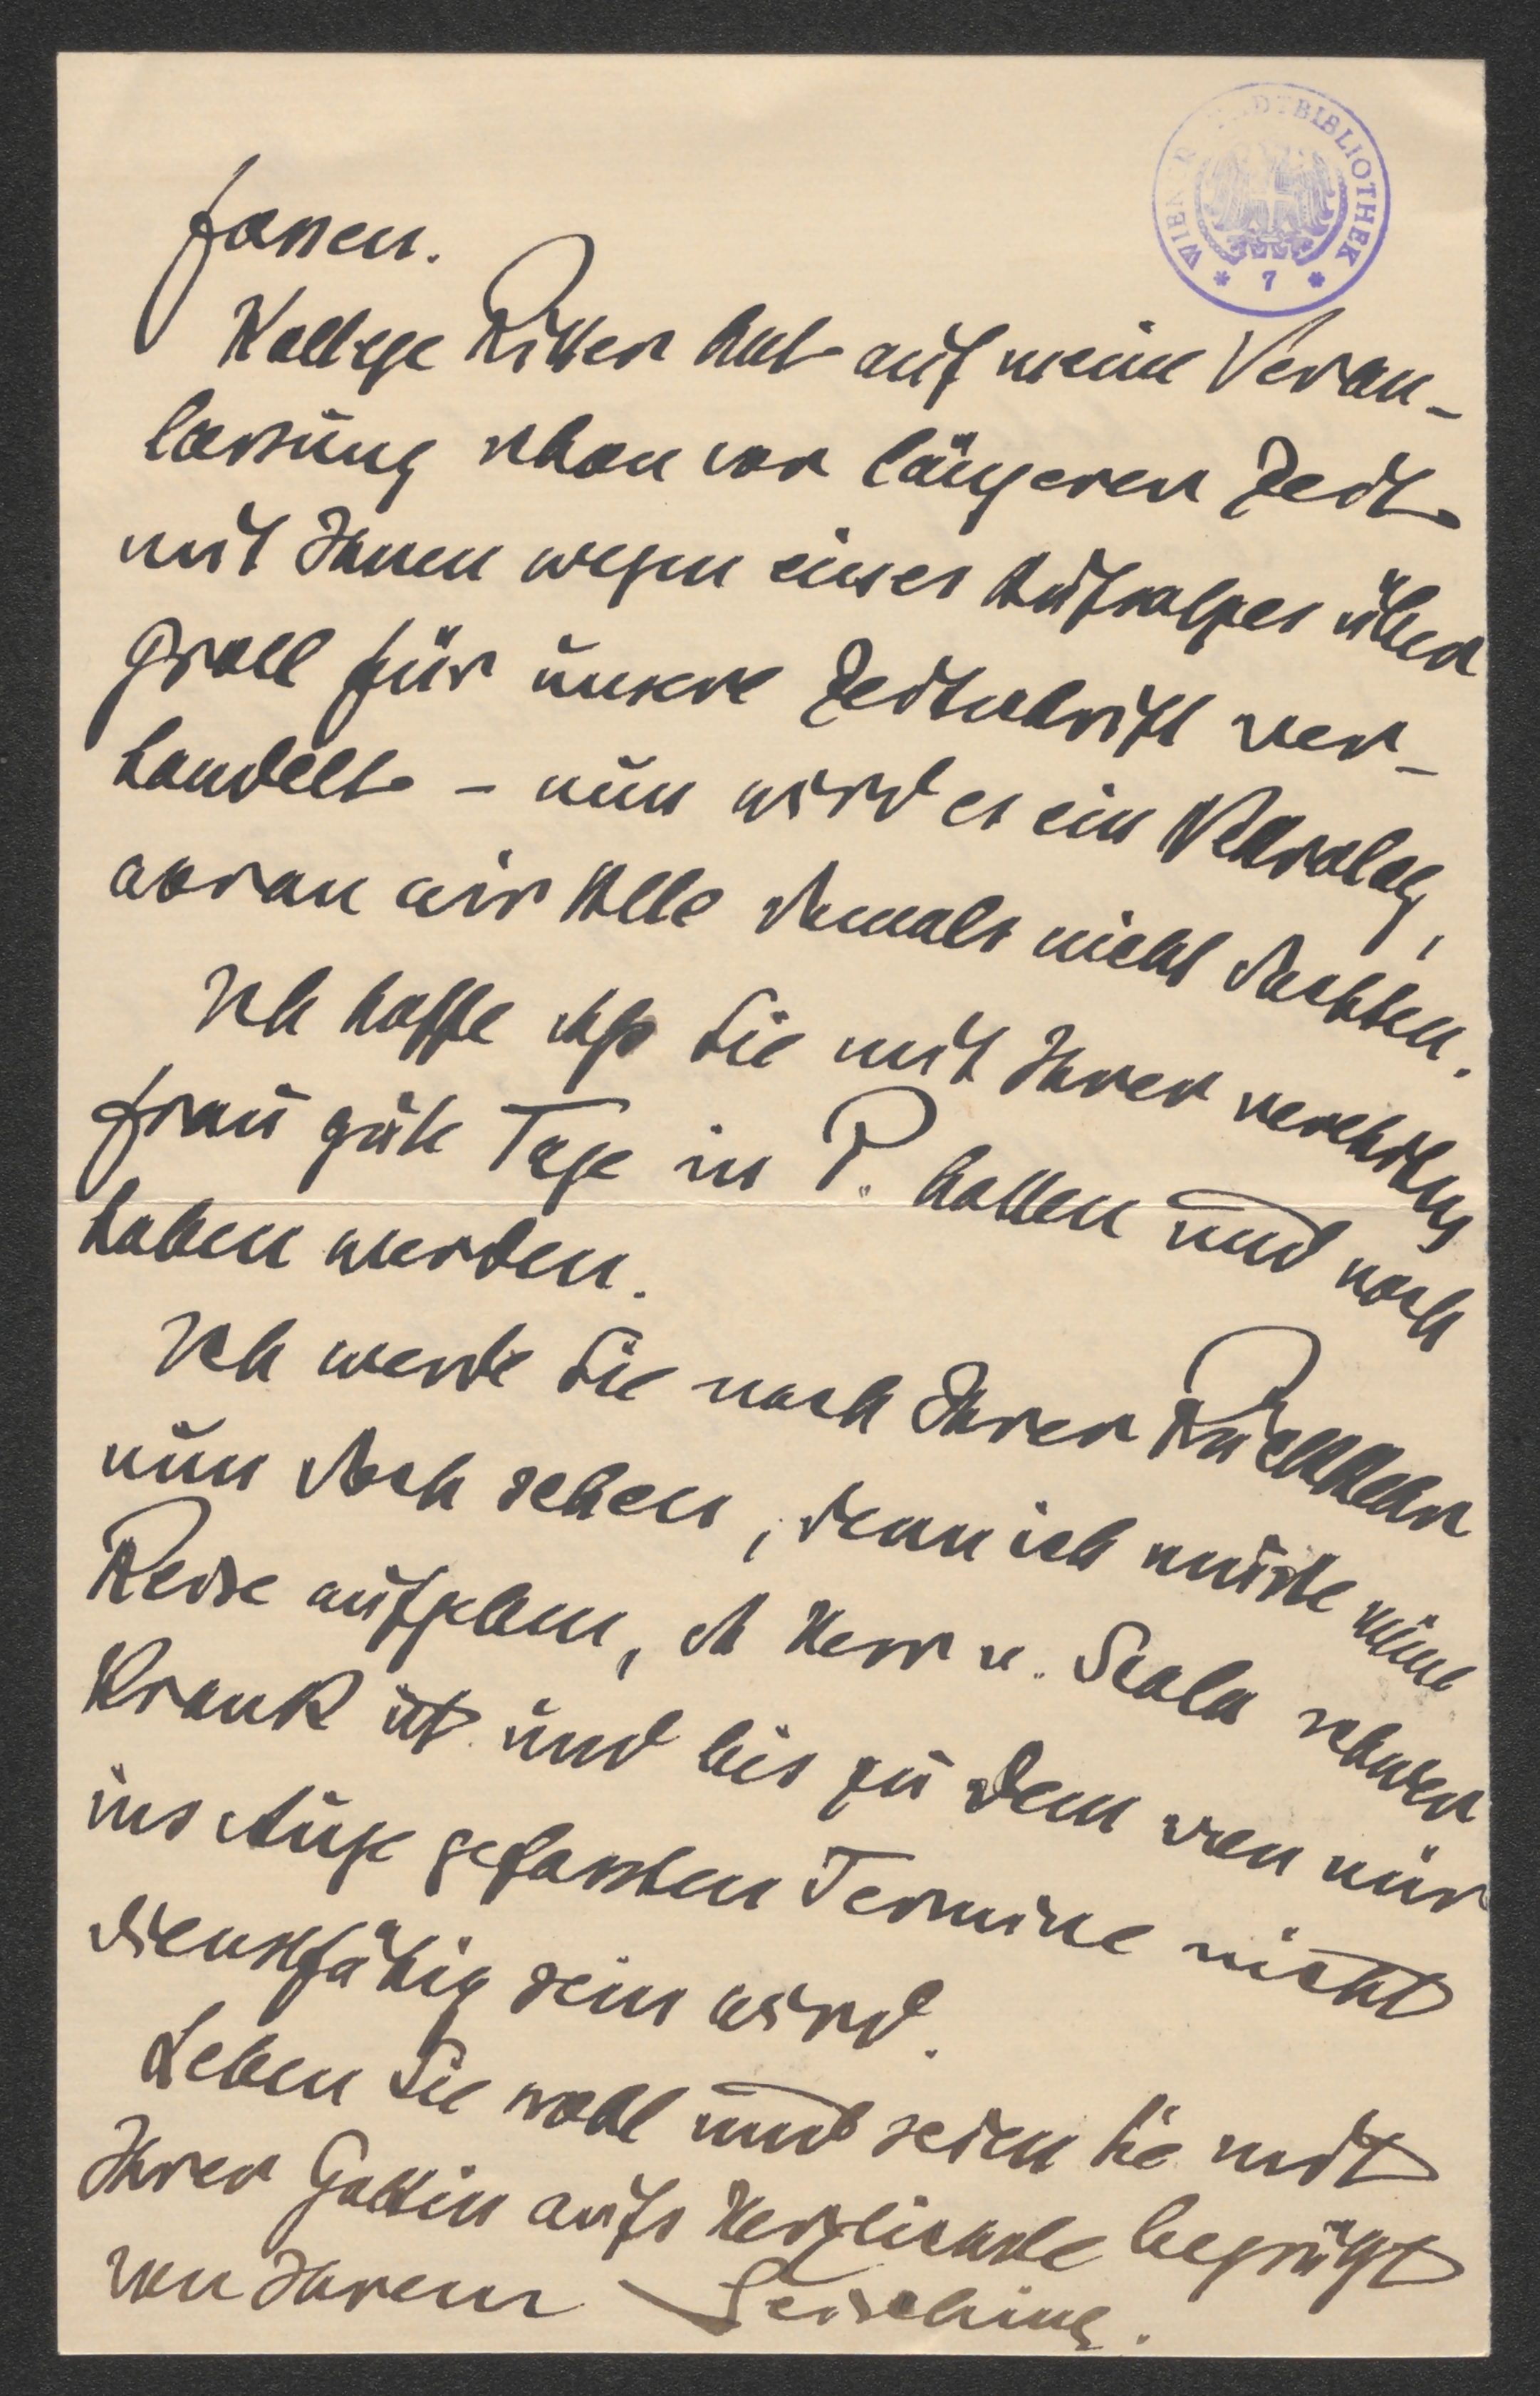 WIENER STADTBIBLIOTHEK
* 7 *
fassen.
Kollege Ritter hat auf meine Veran-
lassung schon vor längerer Zeit
mit Ihnen wegen eines Aufsatzes über
für unsere Zeitschrift ver-
handelt - nun wird es ein Nekrolog,
woran wir Alle damals nicht dachten.
Ich hoffe daß Sie mit Ihrer verehrten
Frau gute Tage in P. hatten und noch
haben werden.
Ich werde Sie nach Ihrer Rückkehr
nun doch sehen, denn ich musste meine
Reise aufgeben, da Herr v. Scala schwer
krank ist und bis zu dem von mir
ins Auge gefassten Termine nicht
dienstfähig sein wird.
Leben Sie wohl und seien Sie mit
Ihrer Gattin aufs Herzlichste begrüßt
von Ihrem Leisching.